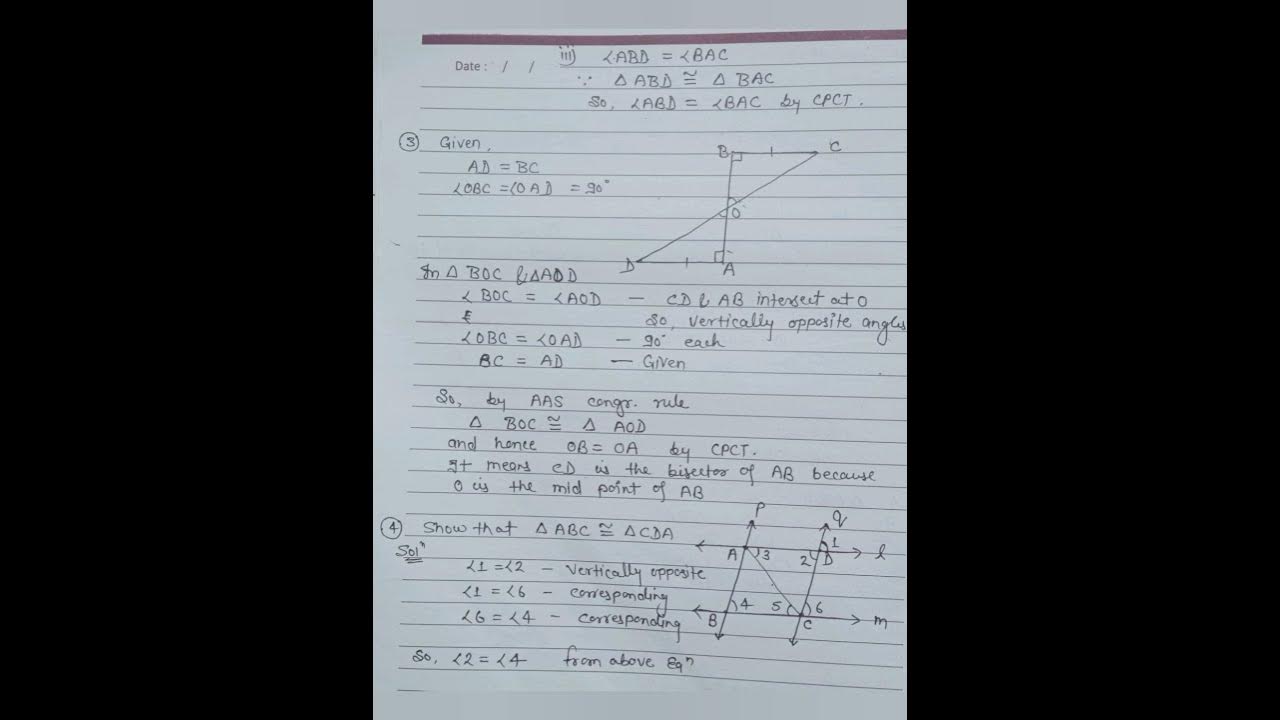 Date : / /
iii) ∠ABD = ∠BAC
∵ △ ABD ≅ △ BAC
So, ∠ABD = ∠BAC by CPCT.
③ Given,
AD = BC
∠OBC = ∠OAD = 90°
B C
O
D A
In △ BOC & △AOD
∠ BOC = ∠AOD — CD & AB intersect at O
So, vertically opposite angles
∠OBC = ∠OAD — 90° each
BC = AD — Given
So, by AAS congr. rule
△ BOC ≅ △ AOD
and hence OB = OA by CPCT.
It means CD is the bisector of AB because
O is the mid point of AB
④ Show that △ABC ≅ △CDA
Solⁿ
∠1 = ∠2 — Vertically opposite
∠1 = ∠6 — corresponding
∠6 = ∠4 — corresponding
So, ∠2 = ∠4 from above Eqⁿ
p q
A 3 2 D 1 l
B 4 5 C 6 m